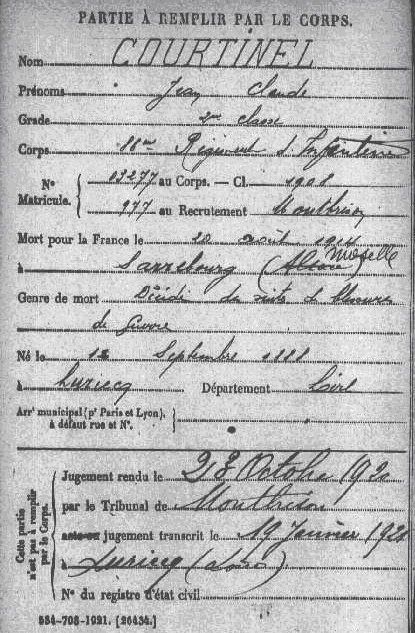 PARTIE À REMPLIR PAR LE CORPS.
Nom COURTINEL
Prénoms Jean Claude
Grade 2me classe
Corps 86me Régiment d'Infanterie
N° Matricule. { 03277 au Corps. — Cl. 1908
977 au Recrutement Montbrison
Mort pour la France le 20 août 1914
à Sarrebourg (Alsace) Moselle
Genre de mort Décédé des suites de blessures
de guerre
Né le 12 Septembre 1888
à Luriecq Département Loire
Arr' municipal (p' Paris et Lyon),
à défaut rue et N°.
Cette partie n'est pas à remplir par le Corps.
Jugement rendu le 28 Octobre 1920
par le Tribunal de Montbrison
acte ou jugement transcrit le 19 Janvier 1921
à Luriecq (Loire)
N° du registre d'état civil
534-708-1921. [26434.]